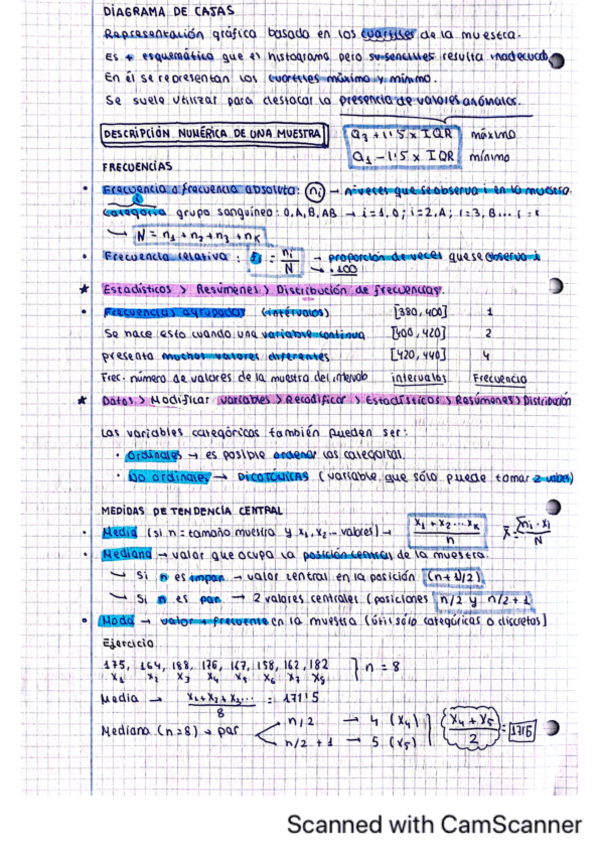 DIAGRAMA DE CAJAS
Representación gráfica basada en los cuartiles de la muestra.
Es + esquemática que el histograma pero su sencillez resulta inadecuada
En él se representan los cuartiles máximo y mínimo.
Se suele utilizar para destacar la presencia de valores anómalos.
DESCRIPCIÓN NUMÉRICA DE UNA MUESTRA
Q3 + 1'5 x IQR máximo
Q1 - 1'5 x IQR mínimo
FRECUENCIAS
• Frecuencia o frecuencia absoluta: ni → nº veces que se observa i en la muestra.
Categoría grupo sanguíneo: O, A, B, AB → i=1, O; i=2, A; i=3, B...
↳ N = n1 + n2 + n3 + nK
• Frecuencia relativa: fi = ni/N → proporción de veces que se observa i
↳ · 100
★ Estadísticos > Resúmenes > Distribución de frecuencias.
• Frecuencias agrupadas (intervalos) [380, 400] 1
Se hace esto cuando una variable continua [400, 420] 2
presenta muchos valores diferentes [420, 440] 4
Frec. número de valores de la muestra del intervalo intervalos Frecuencia
★ Datos > Modificar variables > Recodificar > Estadísticos > Resúmenes > Distribución
Las variables categóricas también pueden ser:
• Ordinales → es posible ordenar las categorías.
• No ordinales → DICOTÓMICAS (variable que sólo puede tomar 2 valores)
MEDIDAS DE TENDENCIA CENTRAL
• Media (si n = tamaño muestra y x1, x2... valores) → x1 + x2 ... xK / n x̄ = Σni · xi / N
• Mediana → valor que ocupa la posición central de la muestra.
↳ Si n es impar → valor central en la posición (n+1/2)
↳ Si n es par → 2 valores centrales (posiciones n/2 y n/2 + 1
• Moda → valor + frecuente en la muestra (útil sólo categóricas o discretas)
Ejercicio
175, 164, 188, 176, 167, 158, 162, 182 } n = 8
x1 x2 x3 x4 x5 x6 x7 x8
Media → x1 + x2 + x3... / 8 = 171'5
Mediana (n=8) → par
n/2 → 4 (x4)
n/2 + 1 → 5 (x5)
x4 + x5 / 2 =
Scanned with CamScanner